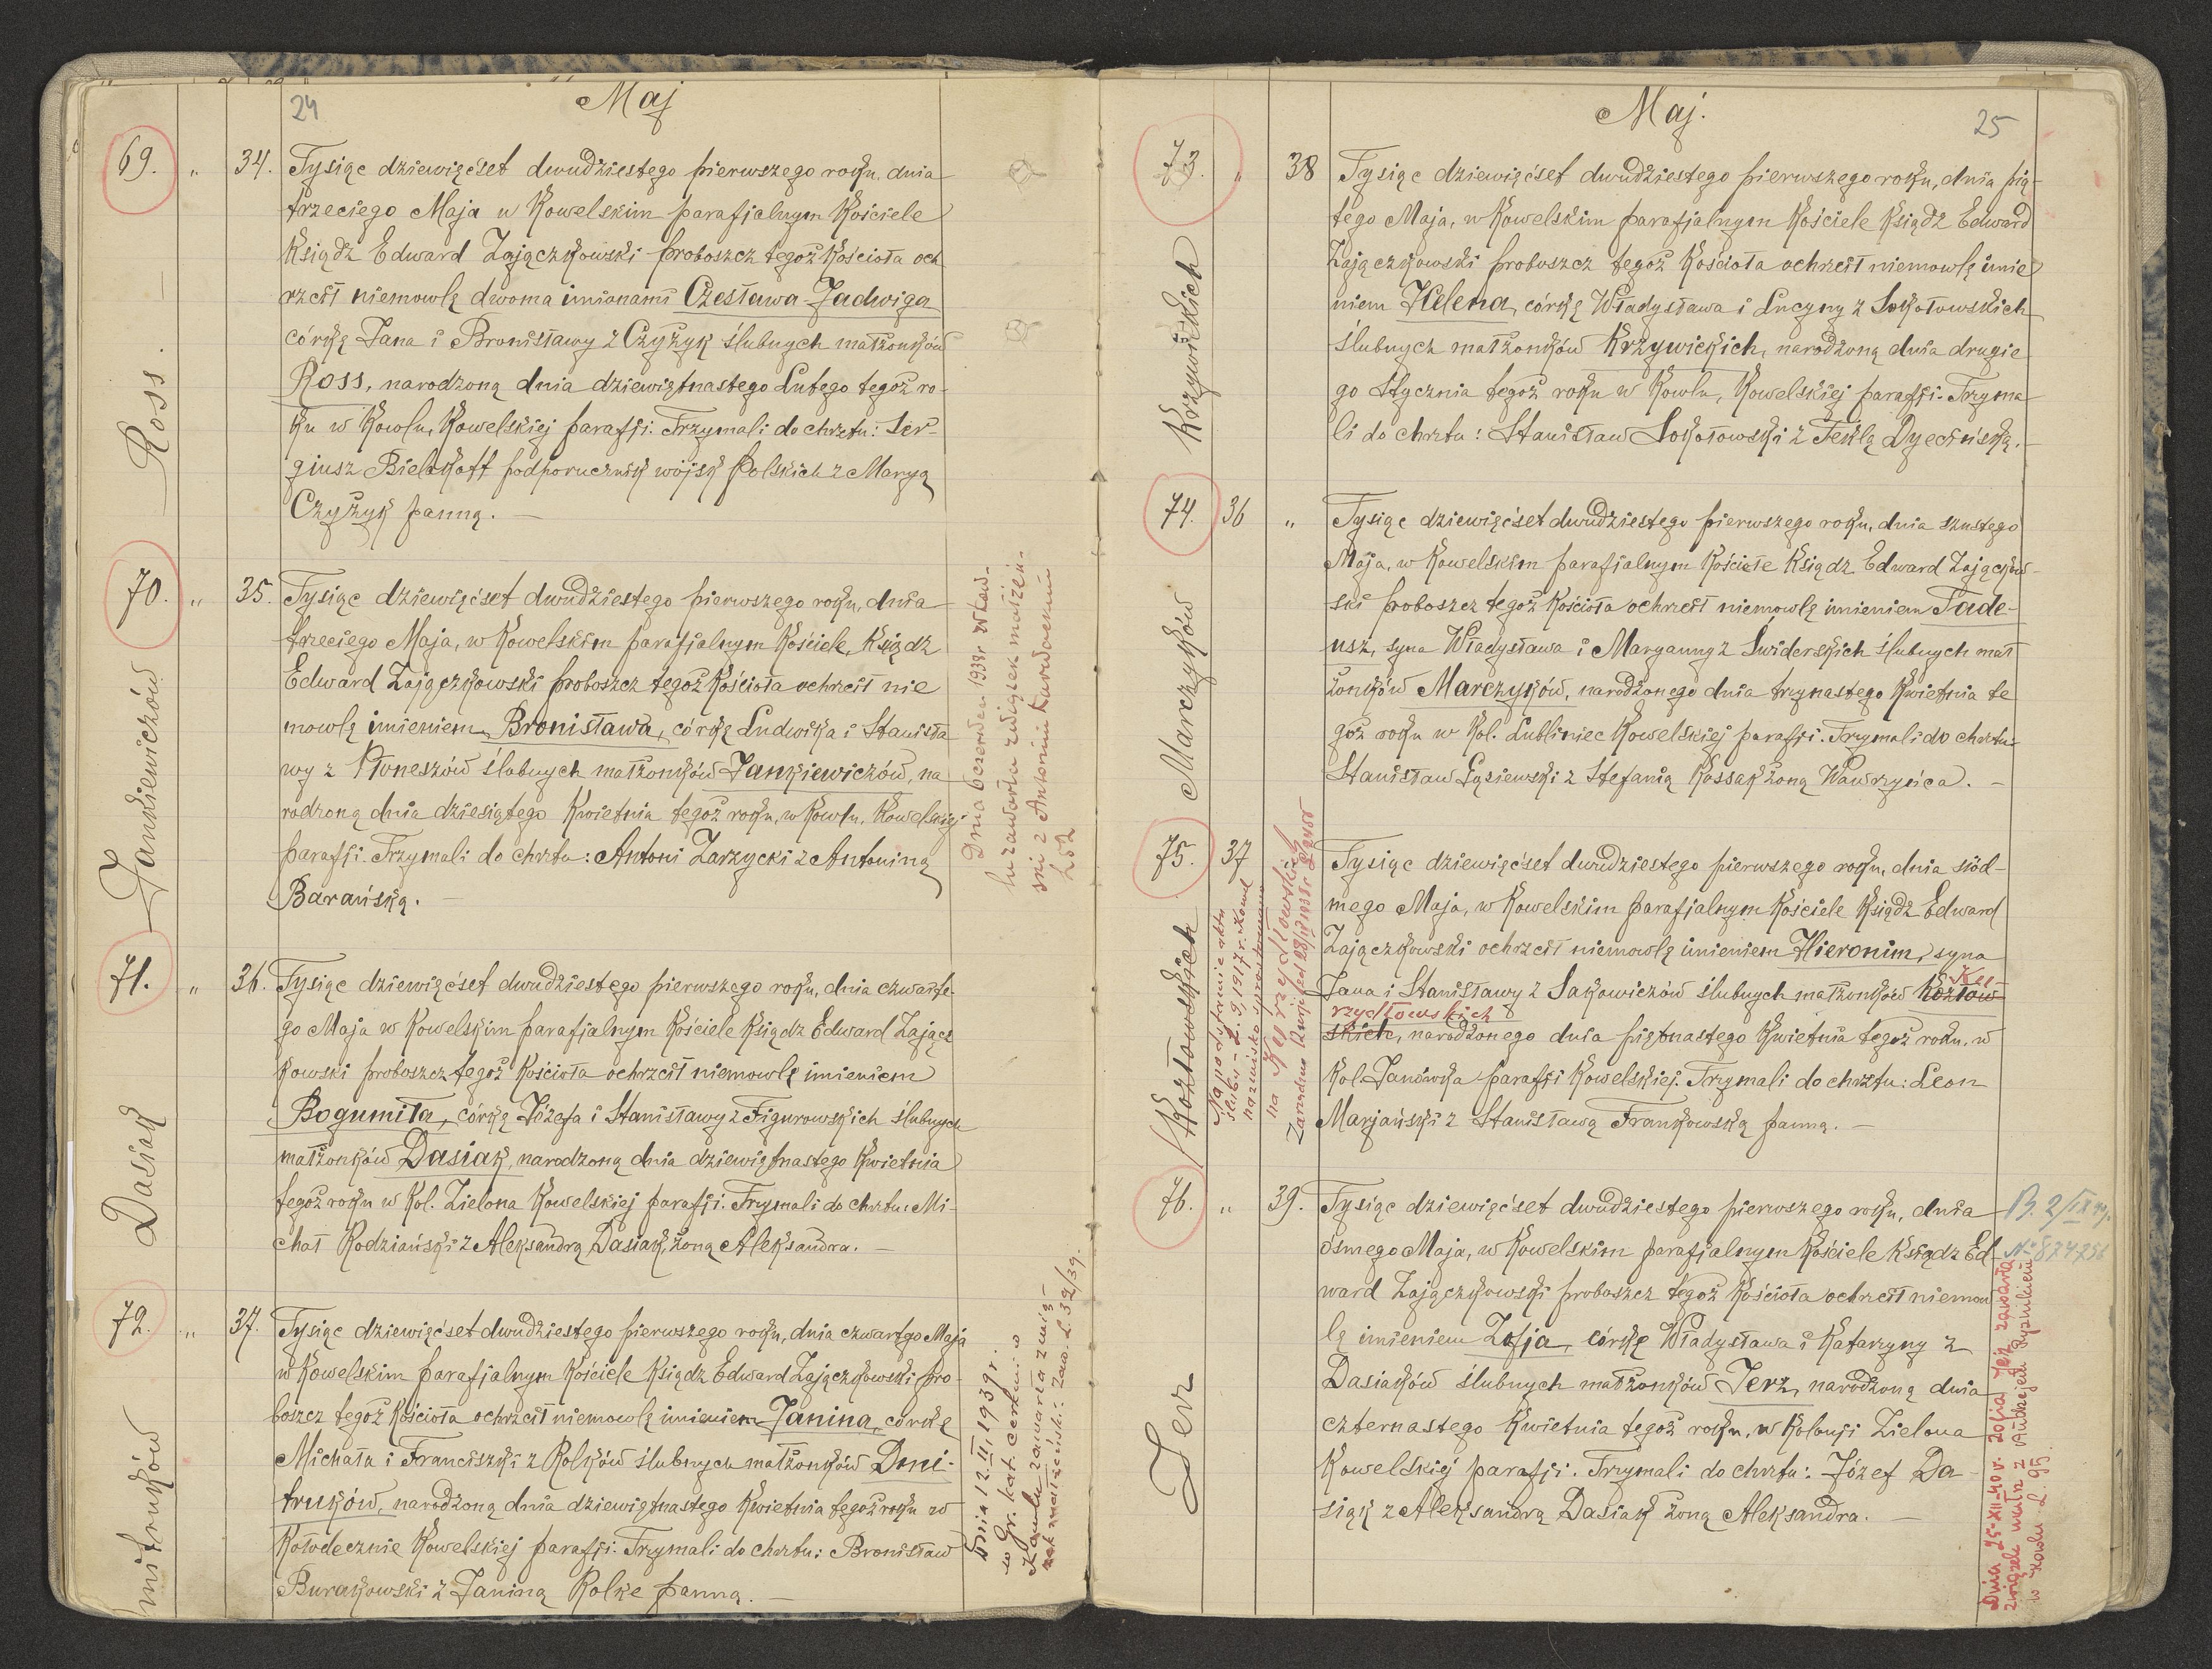 24
Maj
69. „ 34.
Ross
Tysiąc dziewięćset dwudziestego pierwszego roku, dnia
trzeciego Maja w Kowelskim parafjalnym Kościele
Ksiądz Edward Zajączkowski proboszcz tegoż Kościoła och
rzcił niemowlę dwoma imionami Czesława Jadwiga
córkę Jana i Bronisławy z Czyżyk ślubnych małżonków
Ross, narodzoną dnia dziewiętnastego Lutego tegoż ro-
ku w Kowlu, Kowelskiej parafji. Trzymali do chrztu: Ser-
giusz Bielakoff podporucznik wojsk Polskich z Maryą
Czyżyk panną. —
70. „ 35.
Jankiewiczów
Tysiąc dziewięćset dwudziestego pierwszego roku, dnia
trzeciego Maja, w Kowelskim parafjalnym Kościele, Ksiądz
Edward Zajączkowski proboszcz tegoż Kościoła ochrzcił nie
mowlę imieniem Bronisława, córkę Ludwika i Stanisła
wy z Płoneszów ślubnych małżonków Jankiewiczów, na
rodzoną dnia dziesiątego Kwietnia tegoż roku, w Kowlu, Kowelskiej
parafji. Trzymali do chrztu: Antoni Zarzycki z Antoniną
Barańską. —
Dnia 6 czerwca 1938 r. w Kow-
lu zawarła związek małżeń-
ski z Antonim
L 52
71. „ 36.
Dasiak
Tysiąc dziewięćset dwudziestego pierwszego roku, dnia czwarte-
go Maja w Kowelskim parafjalnym Kościele Ksiądz Edward Zającz
kowski proboszcz tegoż Kościoła ochrzcił niemowlę imieniem
Bogumiła, córkę Józefa i Stanisławy z Figurowskich ślubnych
małżonków Dasiak, narodzoną dnia dziewiętnastego Kwietnia
tegoż roku w Kol. Zielona Kowelskiej parafji. Trzymali do chrztu: Mi-
chał Rodziański z Aleksandrą Dasiak, żoną Aleksandra. —
72. „ 37.
mitruków
Tysiąc dziewięćset dwudziestego pierwszego roku, dnia czwartgo Maja
w Kowelskim parafjalnym Kościele Ksiądz Edward Zajączkowski pro-
boszcz tegoż Kościoła ochrzcił niemowlę imieniem Janina, córkę
Michała i Franciszki z Rolków ślubnych małżonków Dmi-
truków, narodzoną dnia dziewiętnastego Kwietnia tegoż roku w
Kołodecznie Kowelskiej parafji. Trzymali do chrztu: Bronisław
Burakowski z Janiną Rolke panną. —
Dnia 12.II.1939 r.
w gr. kat. cerkwi w
Kowelu zawarła zwią-
zek małżeński: Zaw. L. 32/39.
Maj.
25
73. „ 38
Krzywickich
Tysiąc dziewięćset dwudziestego pierwszego roku, dnia pią-
tego Maja, w Kowelskim parafjalnym Kościele Ksiądz Edward
Zajączkowski proboszcz tegoż Kościoła ochrzcił niemowlę imie
niem Helena, córkę Władysława i Lucyny z Sokołowskich
ślubnych małżonków Krzywickich, narodzoną dnia drugie
go Stycznia tegoż roku w Kowlu, Kowelskiej parafji. Trzyma
li do chrztu: Stanisław Sokołowski z Teklą Dyecińską. —
74. 36 „
Marczyków
Tysiąc dziewięćset dwudziestego pierwszego roku, dnia szustego
Maja, w Kowelskim parafjalnym Kościele Ksiądz Edward Zajączkow-
ski proboszcz tegoż Kościoła ochrzcił niemowlę imieniem Tade-
usz, syna Władysława i Maryanny z Świderskich ślubnych mał
żonków Marczyków, narodzonego dnia trzynastego Kwietnia te
goż roku w Kol. Lubliniec Kowelskiej parafji. Trzymali do chrztu:
Stanisław Gąsiewski z Stefanią Kossak żoną Wawrzyńca. —
75. 37
Kozłowskich
Na podstawie aktu
ślubu - L. 9, 1917 r. Kowel
nazwisko sprostowano
na Kurzydłowskich
Tysiąc dziewięćset dwudziestego pierwszego roku, dnia siód-
mego Maja, w Kowelskim parafjalnym Kościele Ksiądz Edward
Zajączkowski ochrzcił niemowlę imieniem Hieronim, syna
Jana i Stanisławy z Sakowiczów ślubnych małżonków Kozłow- Ku-
rzydłowskich
skich, narodzonego dnia piętnastego Kwietnia tegoż roku, w
Kol. Janówka parafji Kowelskiej. Trzymali do chrztu: Leon
Marjański z Stanisławą Frankowską panną. —
76. „ 39.
Jerz
Tysiąc dziewięćset dwudziestego pierwszego roku, dnia
ósmego Maja, w Kowelskim parafjalnym Kościele Ksiądz Ed-
ward Zajączkowski proboszcz tegoż Kościoła ochrzcił niemow
lę imieniem Zofja, córkę Władysława i Katarzyny z
Dasiaków ślubnych małżonków Jerz, narodzoną dnia
czternastego Kwietnia tegoż roku, w Kolonji Zielona
Kowelskiej parafji. Trzymali do chrztu: Józef Da-
siak z Aleksandrą Dasiak żoną Aleksandra. —
№ 874256
Dnia 25-XII-40 r. Zofia Jeż zawarła
związek małż. z
w Kowlu L. 95.